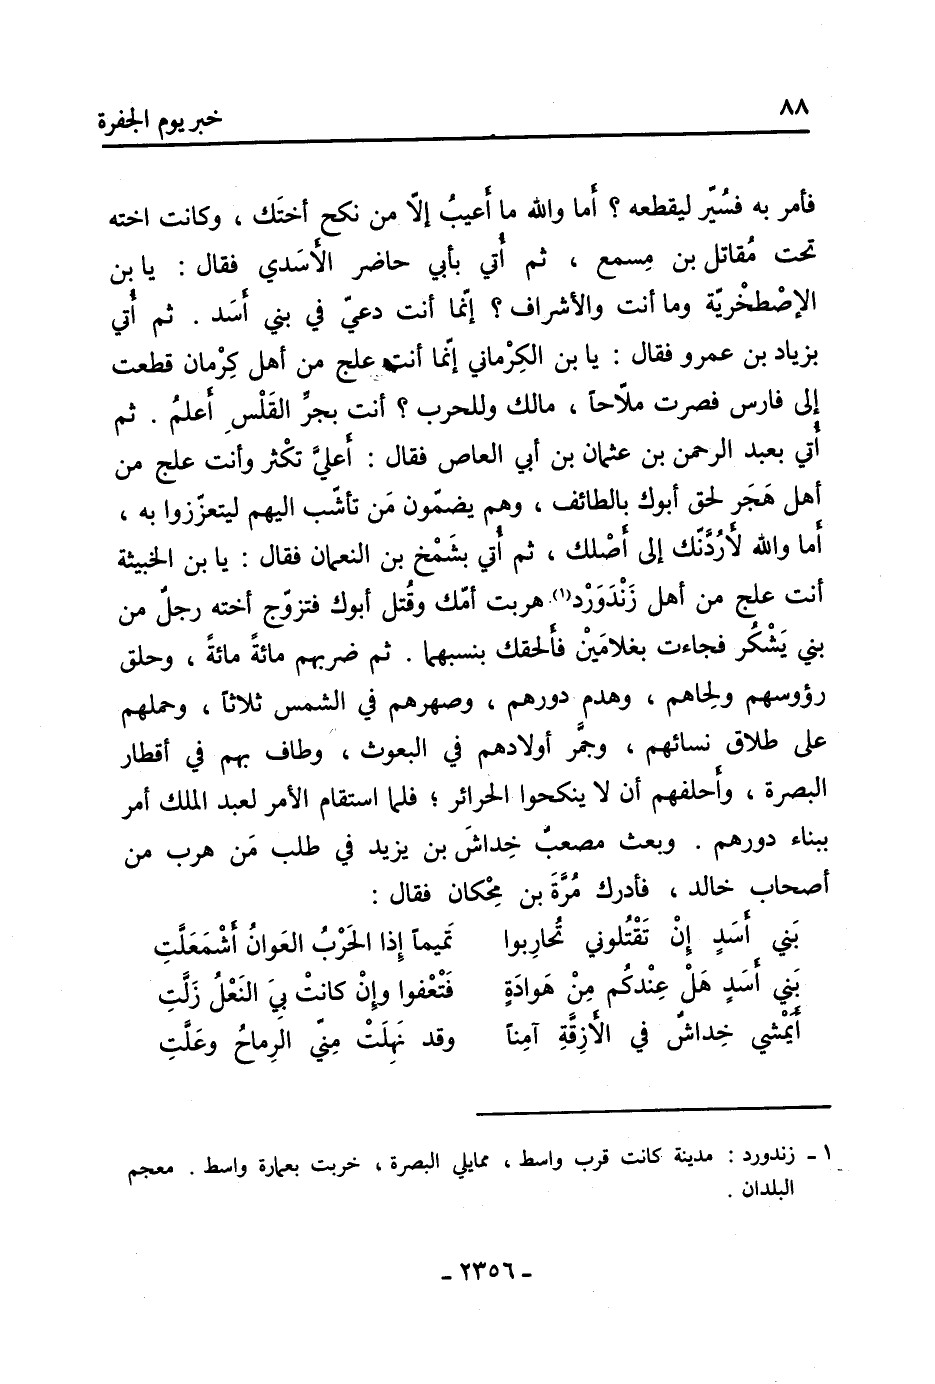 ٨٨
خبر يوم الجفرة
فأمر به فسُيّر ليقطعه ؟ أَما والله ما أَعيبُ إلاّ من نكح أختَك ، وكانت اخته
تحت مُقاتل بن مِسمع ، ثم أُتي بأبي حاضر الأَسَدي فقال : يا بن
الإصْطخْريّة وما أنت والأشراف ؟ إنّما أنت دعيّ في بني أَسَد . ثم أُتي
بزياد بن عمرو فقال : يا بن الكِرْماني إنّما أنت علج من أهل كِرْمان قطعت
إلى فارس فصرت ملاّحاً ، مالك وللحرب ؟ أنت بجرِّ القَلْسِ أَعلمُ . ثم
أُتي بعبد الرحمن بن عثمان بن أبي العاص فقال : أَعليَّ تكْثر وأنت علج من
أهل هَجَر لحق أبوك بالطائف ، وهم يضمّون مَن تأشّب اليهم ليتعزّزوا به ،
أَما والله لأَرُدَّنّك إلى أَصْلك ، ثم أُتي بشَمْخ بن النعمان فقال : يا بن الخبيثة
أنت علج من أهل زَنْدَوَرْد(١) هربت أمّك وقُتل أبوك فتزوّج أخته رجلٌ من
بني يَشْكُر فجاءت بغلامَيْن فأَلحقك بنسبهما . ثم ضربهم مائةً مائةً ، وحلق
رؤوسهم ولحاهم ، وهدم دورهم ، وصهرهم في الشمس ثلاثاً ، وحملهم
على طلاق نسائهم ، وجمَّر أولادهم في البعوث ، وطاف بهم في أقطار
البصرة ، وأَحلفهم أن لا ينكحوا الحرائر ؛ فلما استقام الأمر لعبد الملك أمر
ببناء دورهم . وبعث مصعبٌ خِداشَ بن يزيد في طلب مَن هرب من
أصحاب خالد ، فأدرك مُرَّةَ بن محْكان فقال :
بَني أَسَدٍ إنْ تَقْتُلوني تُحارِبوا تَميماً إذا الحَرْبُ العَوانُ أَشْمَعَلَّتِ
بَني أَسَدٍ هَلْ عِنْدكُم مِنْ هَوادَةٍ فَتْعْفوا وإنْ كانتْ بيَ النَعْلُ زَلَّتِ
أَيَمْشي خِداشٌ في الأَزِقَّةِ آمِناً وقد نَهِلَتْ مِنّي الرِماحُ وعَلَّتِ
١ - زندورد : مدينة كانت قرب واسط ، ممايلي البصرة ، خربت بعمارة واسط . معجم
البلدان .
- ٢٣٥٦ -